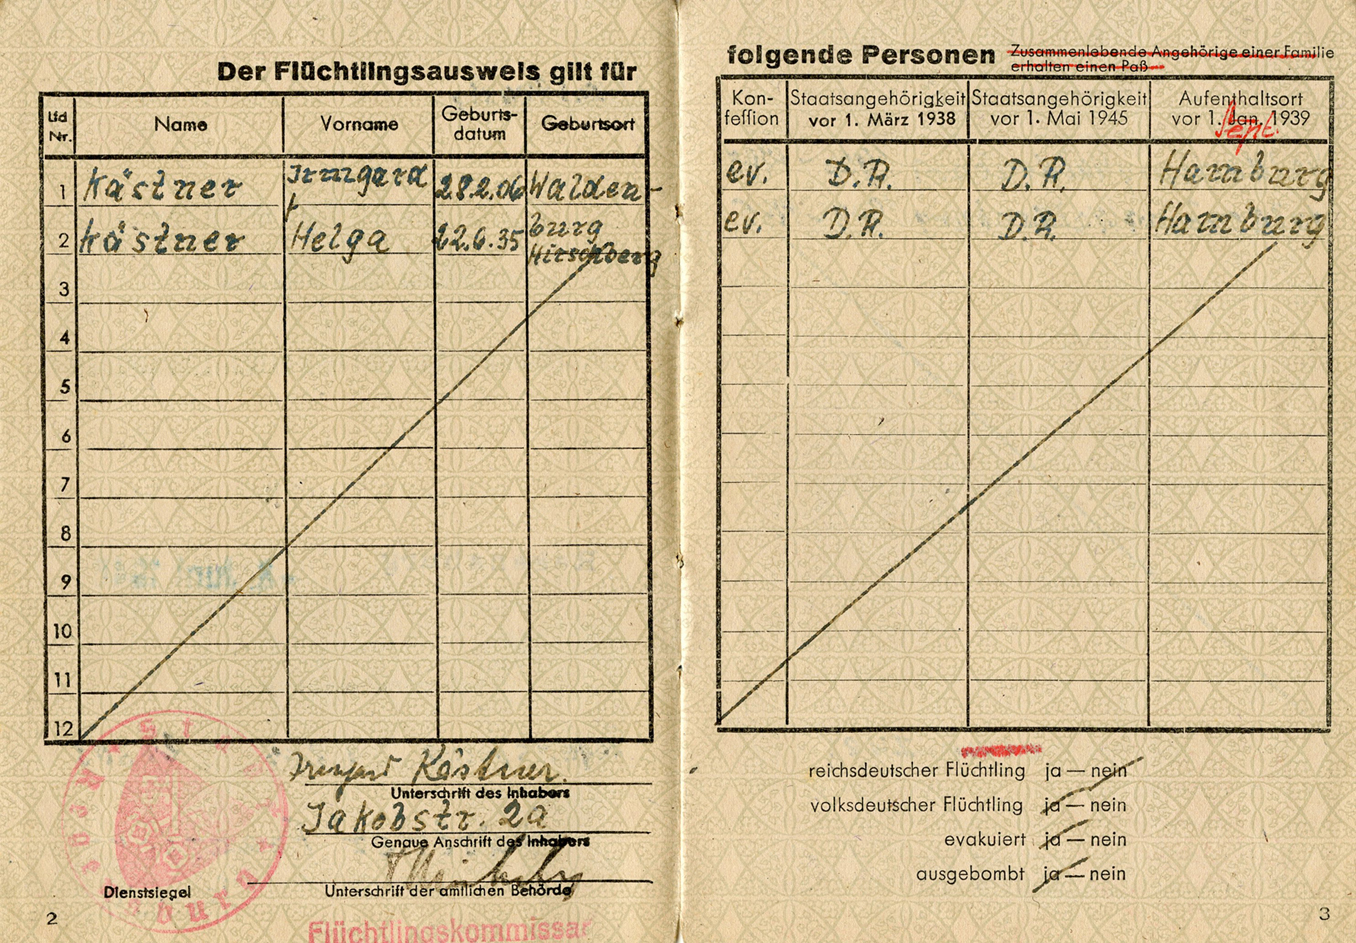 Der Flüchtlingsausweis gilt für
Lfd Nr. Name Vorname Geburts-datum Geburtsort
1 Kästner Irmgard 28.2.06 Walden-
burg
2 Kästner Helga 22.6.35 Hirschberg
3
4
5
6
7
8
9
10
11
12
Irmgard Kästner.
Unterschrift des Inhabers
Jakobstr. 2a
Genaue Anschrift des Inhabers
Unterschrift der amtlichen Behörde
Dienstsiegel
Flüchtlingskommissar
2
folgende Personen Zusammenlebende Angehörige einer Familie
erhalten einen Paß
Kon-fession Staatsangehörigkeit vor 1. März 1938 Staatsangehörigkeit vor 1. Mai 1945 Aufenthaltsort vor 1. Jan. Sept. 1939
ev. D.R. D.R. Hamburg
ev. D.R. D.R. Hamburg
reichsdeutscher Flüchtling ja — nein
volksdeutscher Flüchtling ja — nein
evakuiert ja — nein
ausgebombt ja — nein
3